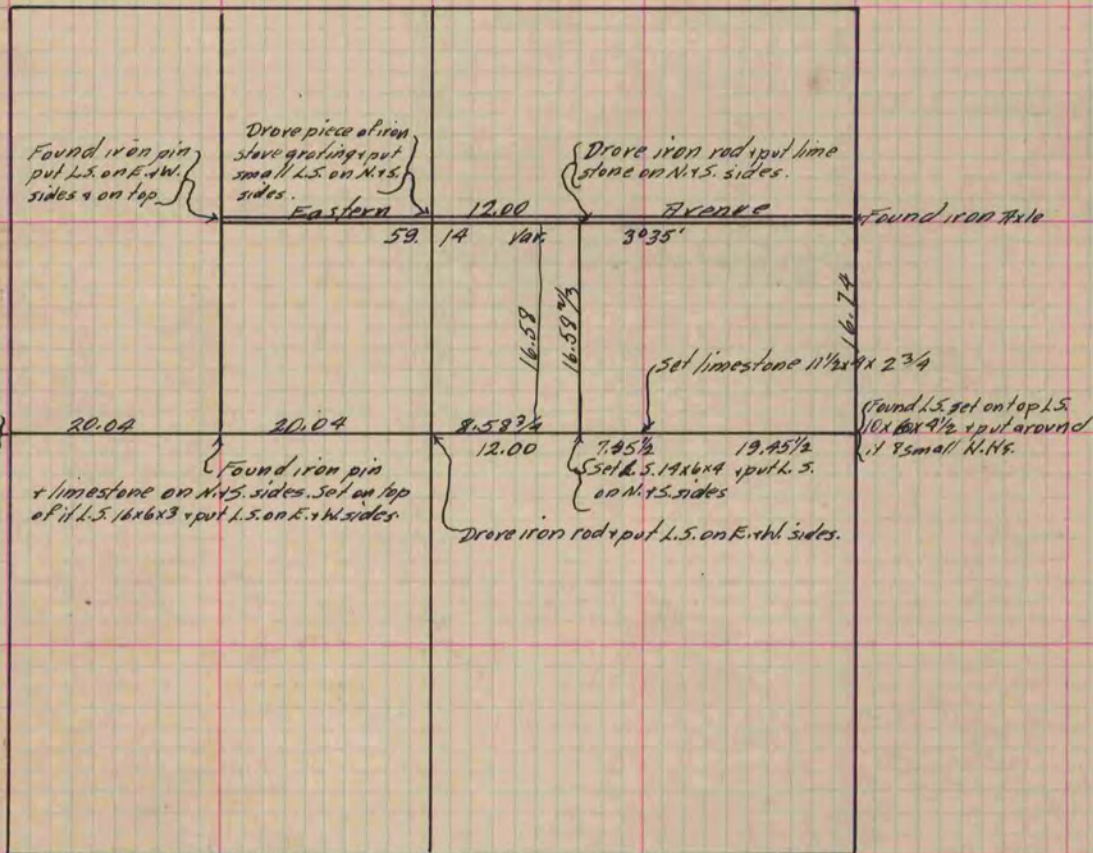 Found iron pin
put L.S. on E. & W.
sides & on top
Drove piece of iron
stove grating & put
small L.S. on N. & S.
sides.
Drove iron rod & put lime
stone on N. & S. sides.
Eastern 12.00 Avenue
Found iron Axle
59. 14 Var. 3°35'
16.58
16.58 2/3
16.74
Set limestone 11 1/2 x 9 x 2 3/4
20.04 20.04 8.58 3/4
12.00 7.45 1/2 19.45 1/2
Found L.S. set on top L.S.
10 x 6 x 4 1/2 & put around
it 8 small N.Hs.
Found iron pin
& limestone on N. & S. sides. Set on top
of it L.S. 16x6x3 & put L.S. on E. & W. sides.
Set L.S. 14x6x4 & put L.S.
on N. & S. sides
Drove iron rod & put L.S. on E. & W. sides.